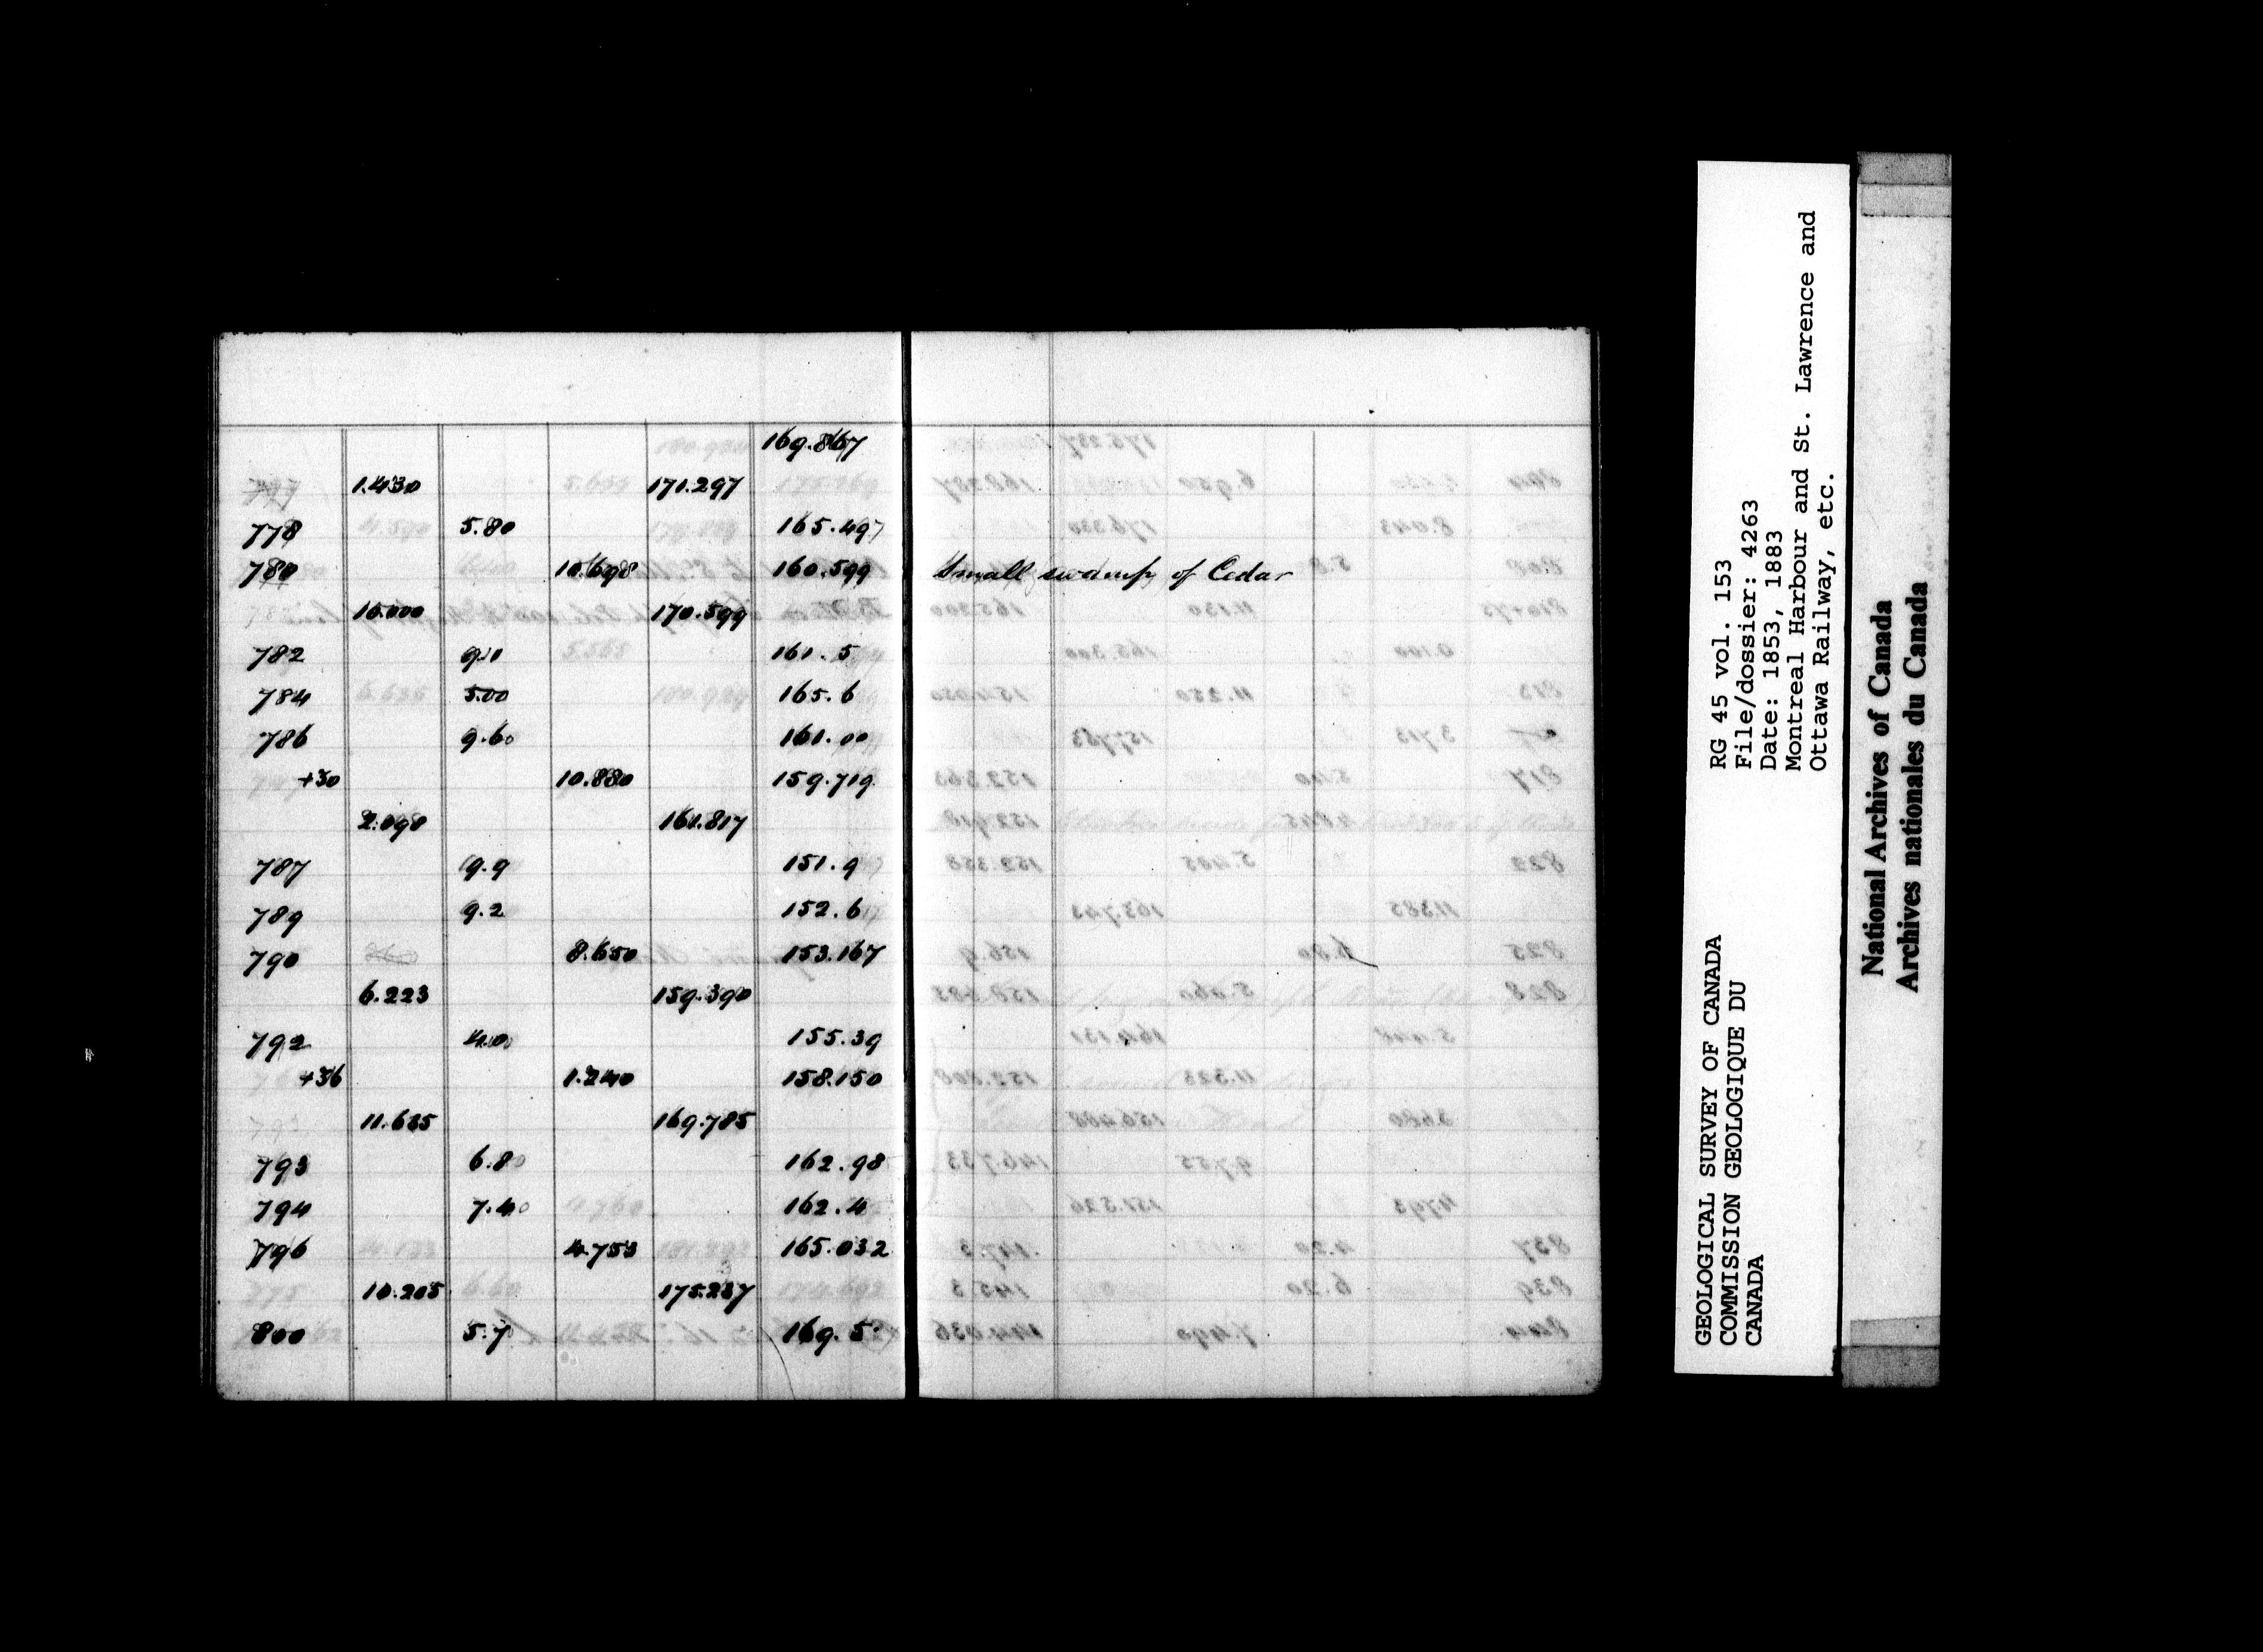 169.867
1.430 171.297
778 5.80 165.497
780 10.698 160.599 Small swamp of Cedar
10.000 170.599
782 9.1 161.5
784 5.00 165.6
786 9.60 161.00
+30 10.880 159.719
2.098 161.817
787 9.9 151.9
789 9.2 152.6
790 8.650 153.167
6.223 159.390
792 4.0 155.39
+36 1.240 158.150
11.635 169.785
793 6.8 162.98
794 7.4 162.4
796 4.753 165.032
10.205 175.237
800 5.7 169.5
RG 45 vol. 153
File/dossier: 4263
Date: 1853, 1883
Montreal Harbour and St. Lawrence and
Ottawa Railway, etc.
GEOLOGICAL SURVEY OF CANADA
COMMISSION GEOLOGIQUE DU
CANADA
National Archives of Canada
Archives nationales du Canada